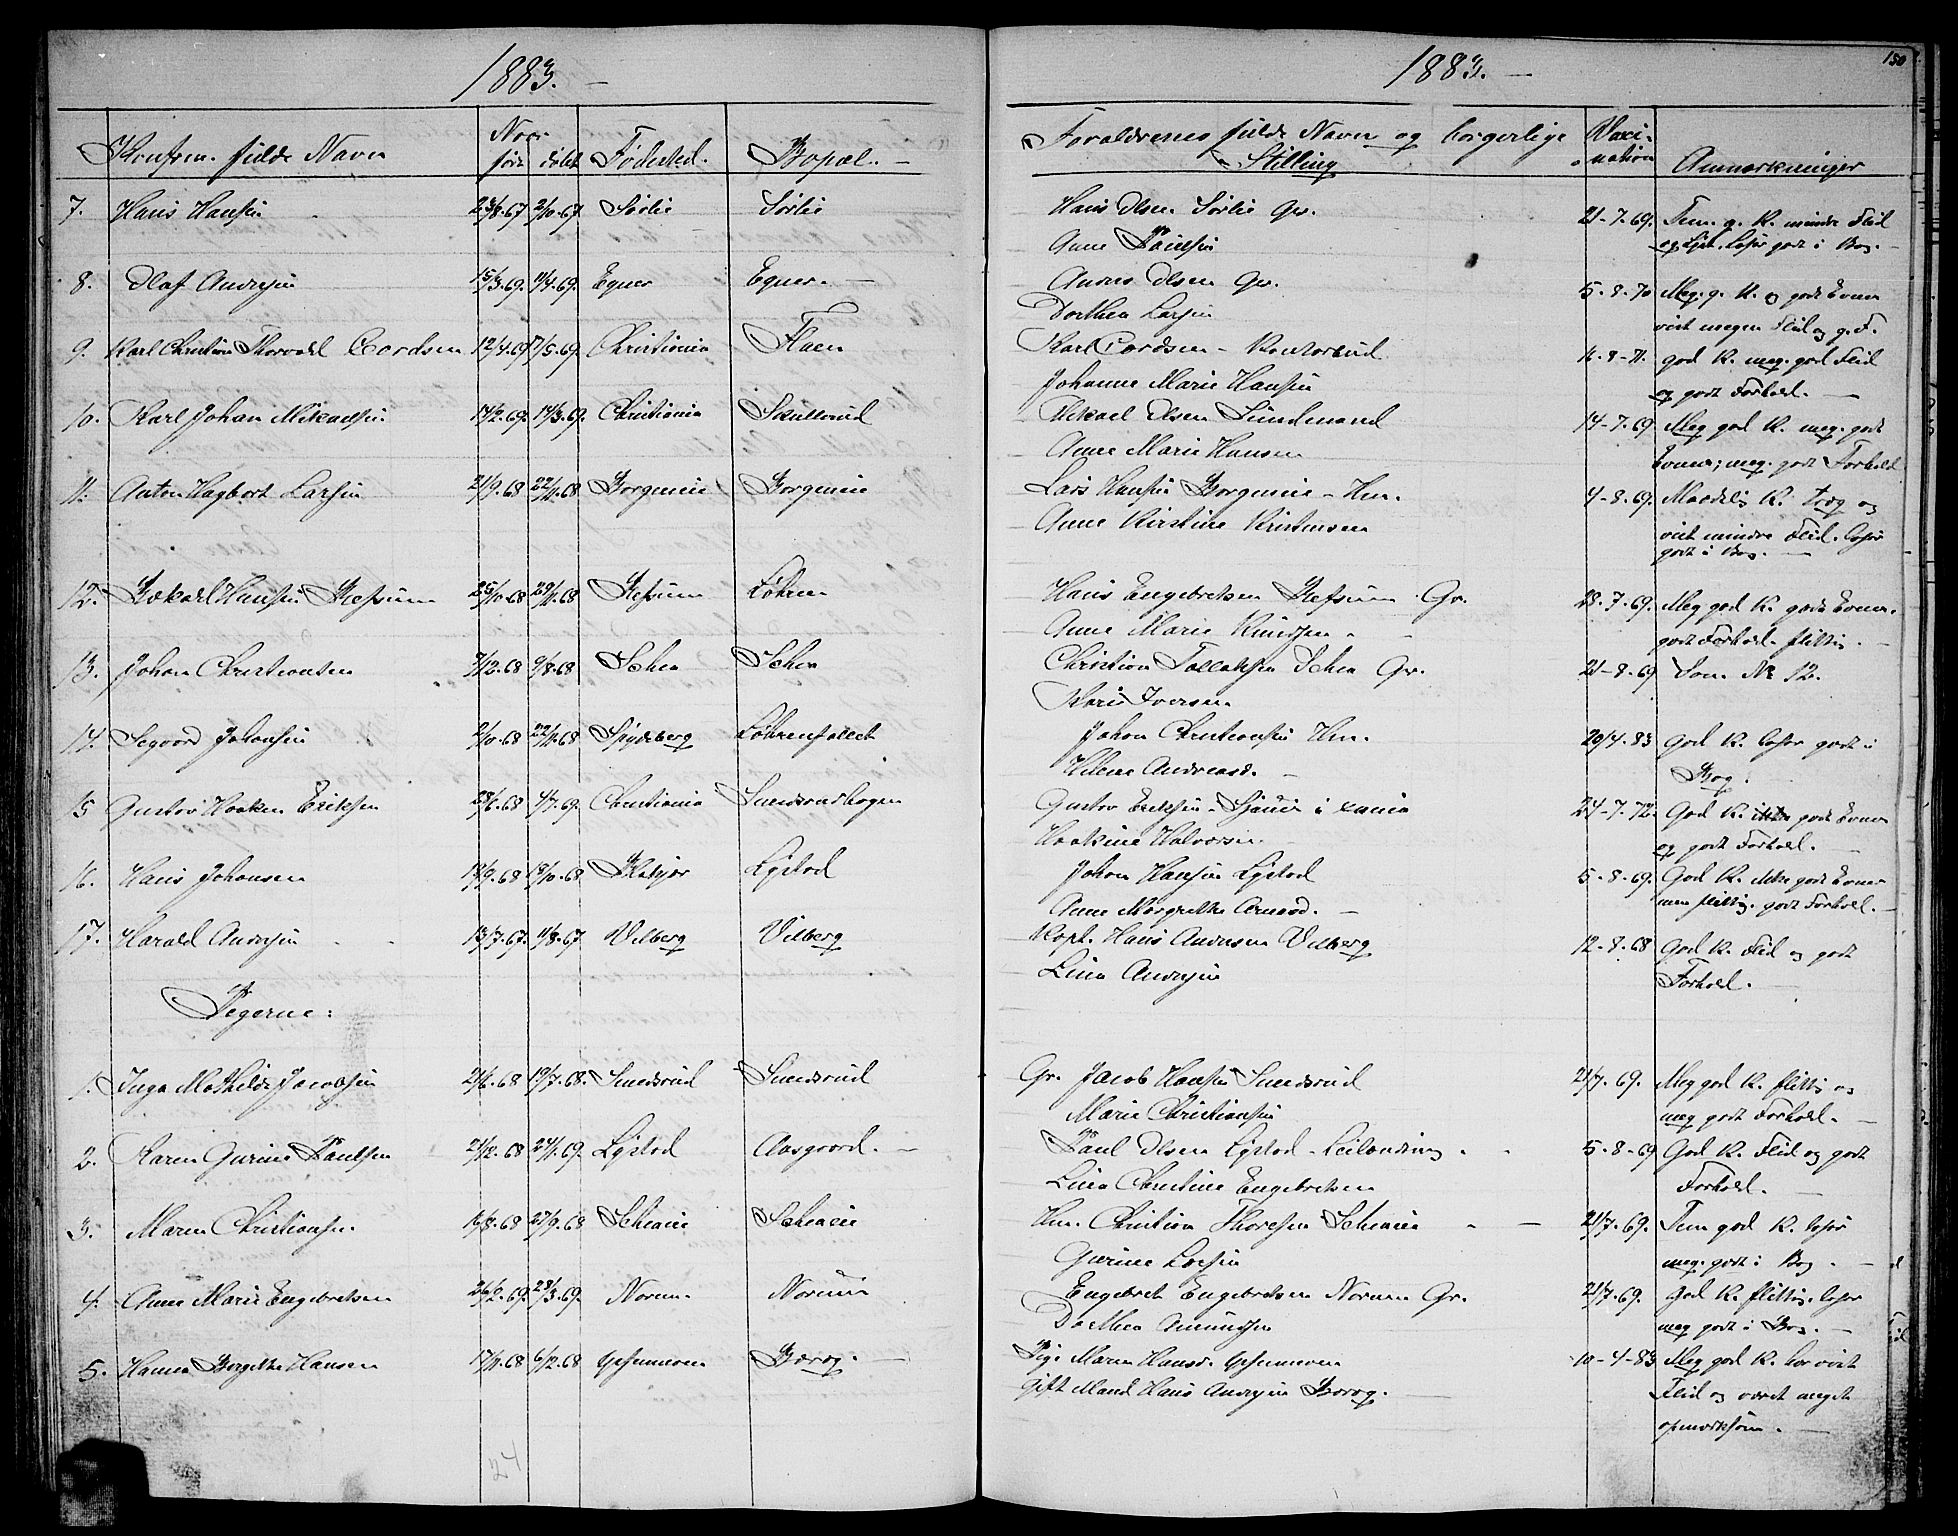 1883. —
1883. —
150
Konfirm. fulde Navn
Naar
født
døbt
Fødested.
Bopæl. —
Forældrenes fulde Navn og borgerlige
Stilling
Vaxi-
nation
Anmærkninger
7. Hans Hansen 23/8.67 2/10.67 Sørlie Sørlie Hans Olsen Sørlie Gr. 21-7.69. Tem. g. K. mindre Flid
Anne Paulsen og Lyst. læser godt i Bog. —
8. Olaf Andersen 15/3.69. 11/4.69. Egner Egner. — Anders Olsen Gr. 5-8-70 Meg. g. K. og gode Evner
Dorthea Larsen vist megen Flid og g. F.
9. Karl Christian Thorvald Cordsen 12/4.69 17/5.69. Christiania Flaen Karl Cordsen - Kontorbud 4-8-71. god K. meg. god Flid
Johanne Marie Hansen og godt Forhold. —
10. Karl Johan Mikaelsen 14/2.69. 14/3.69. Christiania Skullerud Mikael Olsen Sundmand 14-7.69 Meg god K. meg. gode
Anne Marie Hansen Evner; meg. godt Forhold
11. Anton Hagbart Larsen 21/9.68 22/11.68 Borgeneie Borgeneie Lars Hansen Borgeneie - Hm. 4-8.69. Maadelig K. træg og
Anne Kirstine Kristensen vist mindre Flid. læser
godt i Bog. —
12. Hansen Refsum 25/10.68 29/11.68 Refsum Løken Hans Engebretsen Refsum Gr. 28-7.69. Meg god K. gode Evner.
Anne Marie Knudsen. godt Forhold. flittig. —
13. Johan Christiansen 7/12.68 9/8.68 Schea Schea Christian Tollefsen Schea Gr. 21-8.69 Som No 12.
Karen Iversen
14. Segvard Johansen 2/10.68 22/11.68 Spydeberg Løkenfallet Johan Christiansen Hm. 20/4-83 God K. læser godt i
Helene Andreasd. — Bog.
15 Gustav Haaken Eriksen 28/6.68 4/7.69. Christiania Smedsrudhagen Gustav Eriksen - Sjauer i Xania 24-7-72. God K. gode Evner
Haakine Halvorsen. og godt Forhold. —
16. Hans Johansen 14/9.68 18/10.68 Skibjør Lystad Johan Hansen Lystad 5-8-69. God K. ikke gode Evner
Anne Margrethe Amand. — men flittig. godt Forhold. —
17. Harald Andersen 13/7.67. 11/8.67 Vilberg Vilberg Kapt. Hans Andersen Vilberg 12-8-68 God K. Flid og godt
Lina Andersen Forhold. —
Pigerne:
1. Inga Mathilde Jacobsen 21/6.68 19/7.68. Smedsrud Smedsrud Gr. Jacob Hansen Smedsrud 21/7.69. Meg god K. flittig og
Marie Christiansen meg godt Forhold. —
2. Karen Gurine Paulsen 21/12.68 24/1.69. Lystad Aasgaard. — Paul Olsen Lystad - Leilænding 5-8-69 God K. Flid og godt
Lina Christine Engebretsen Forhold. —
3. Maren Christiansen 16/8.68 27/9.68 Scheaeie Scheaeie Hm. Christian Thoresen Scheaeie — 21/7.69. Tem god K. læser
Gurine Larsen meg. godt i Bog. —
4. Anne Marie Engebretsen 26/2.69. 28/3.69. Norum. Norum Engebret Engebretsen Norum Gr. 21/7.69. God K. flittig. læser
Dorthea Amundsen meg godt i Bog. —
5. Hanna Borgitha Hansen 17/11.68 6/12.68 Borog. — Pige Maren Hansd. 10-4-83 Meg god K. har vist
Gift Mand Hans Andersen Borog. — Flid og været meget
opmærksom. —
24